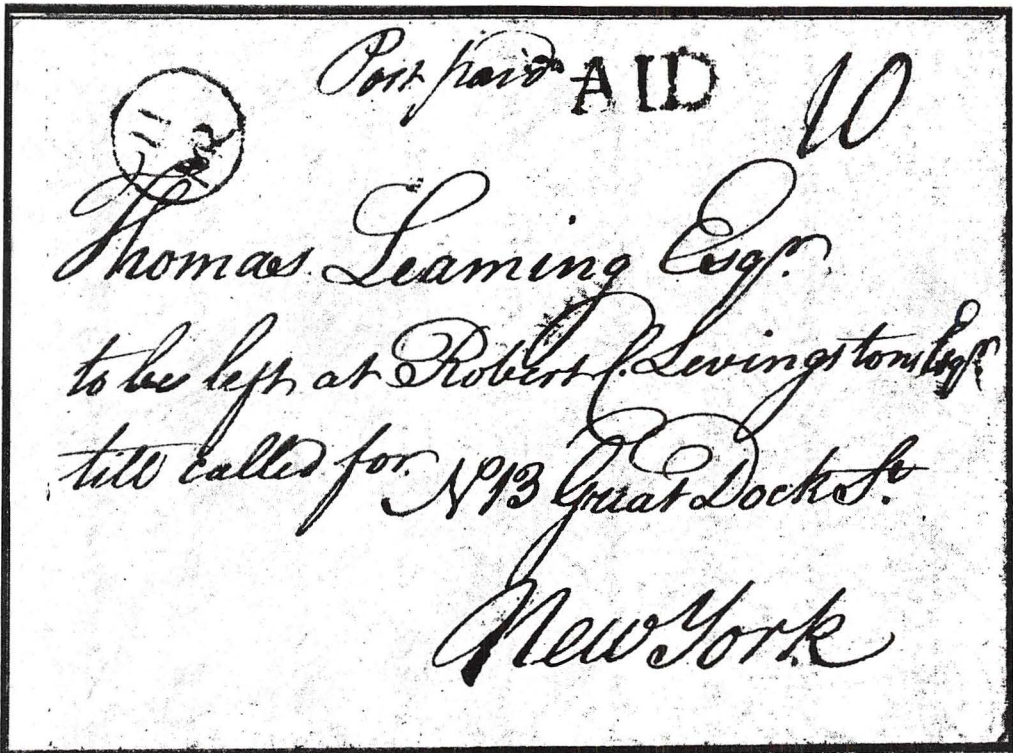 Post paid AID 10
11
Thomas Leaming Esqr.
to be left at Robert C. Levingstons Esqr.
till called for. No 13 Great Dock St.
New York